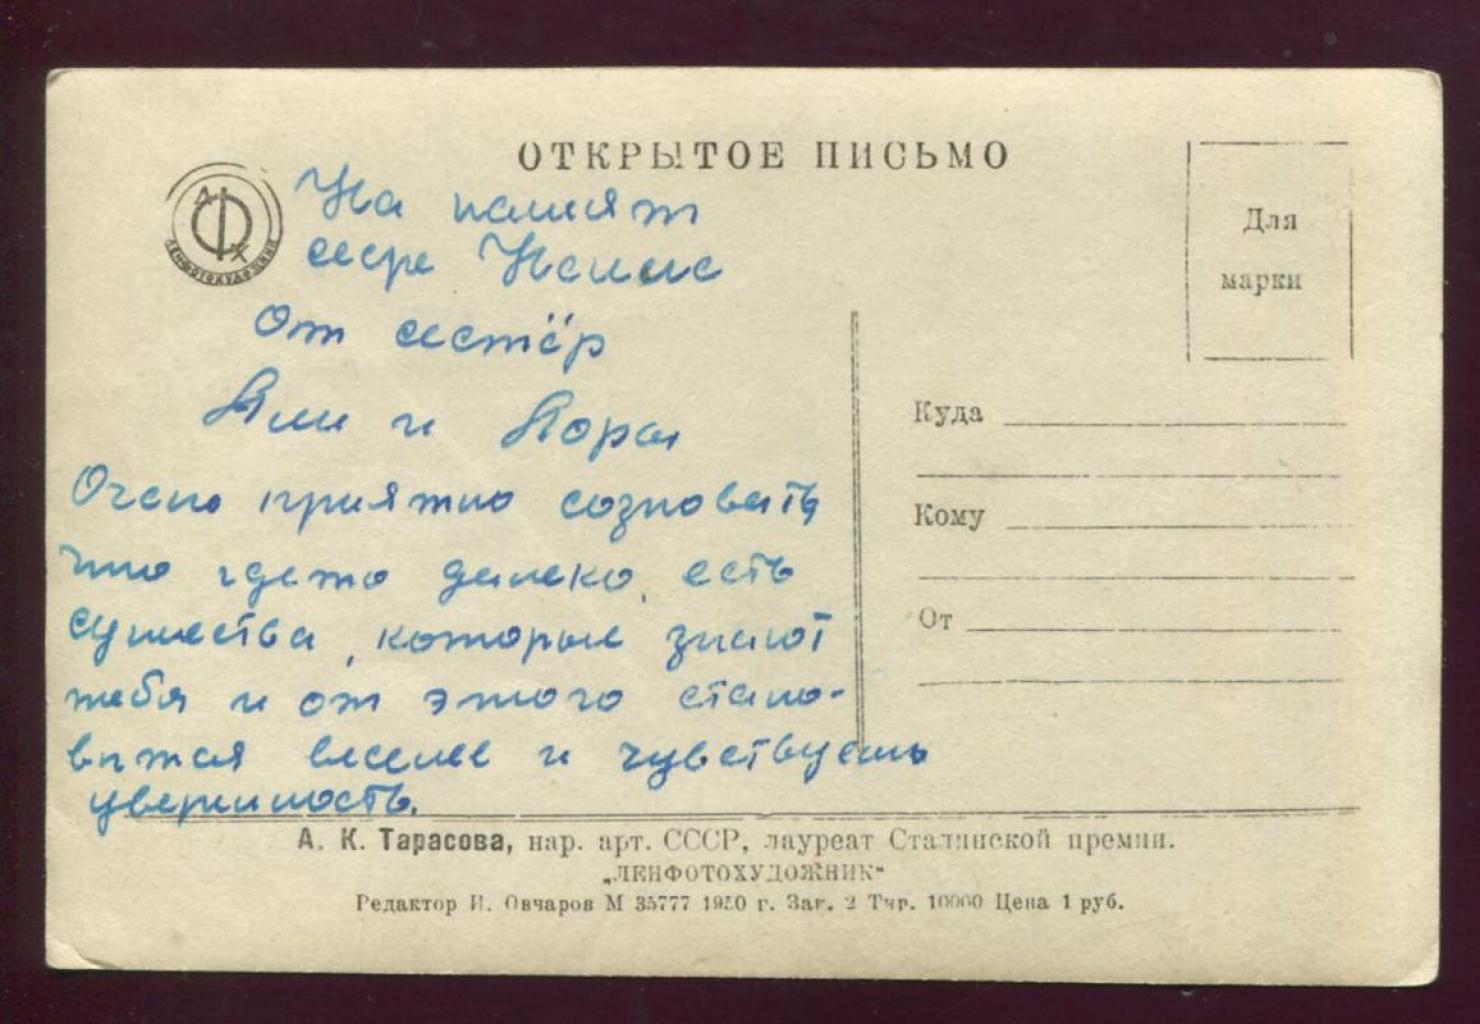 ОТКРЫТОЕ ПИСЬМО
ЛЕНФОТОХУДОЖНИК
Для
марки
На памят
сестре
От сестёр
и
Очень приятно созновать
что где то далеко, есть
существа, которые знают
тебя и от этого стано-
вится веселее и чувствуешь
уверинность.
Куда
Кому
От
А. К. Тарасова, нар. арт. СССР, лауреат Сталинской премии.
„ЛЕНФОТОХУДОЖНИК"
Редактор И. Овчаров М 35777 1950 г. Зак. 2 Тир. 10000 Цена 1 руб.